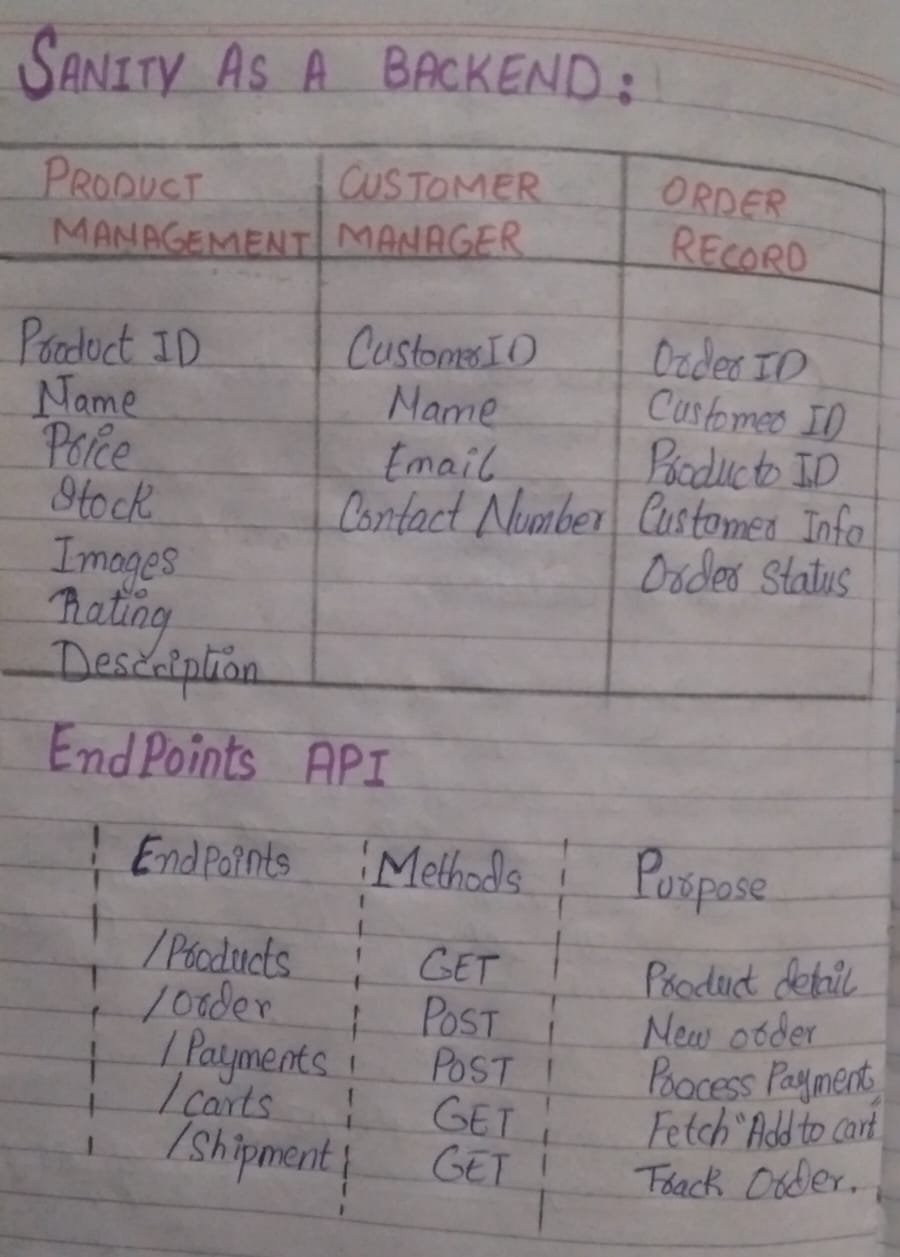 SANITY AS A BACKEND:
PRODUCT MANAGEMENT | CUSTOMER MANAGER | ORDER RECORD
Product ID | Customer ID | Order ID
Name | Name | Customer ID
Price | Email | Products ID
Stock | Contact Number | Customer Info
Images | | Order Status
Rating
Description
EndPoints API
Endpoints | Methods | Purpose
/Products | GET | Product detail
/Order | POST | New order
/Payments | POST | Process Payment
/Carts | GET | Fetch "Add to cart"
/Shipment | GET | Track Order.